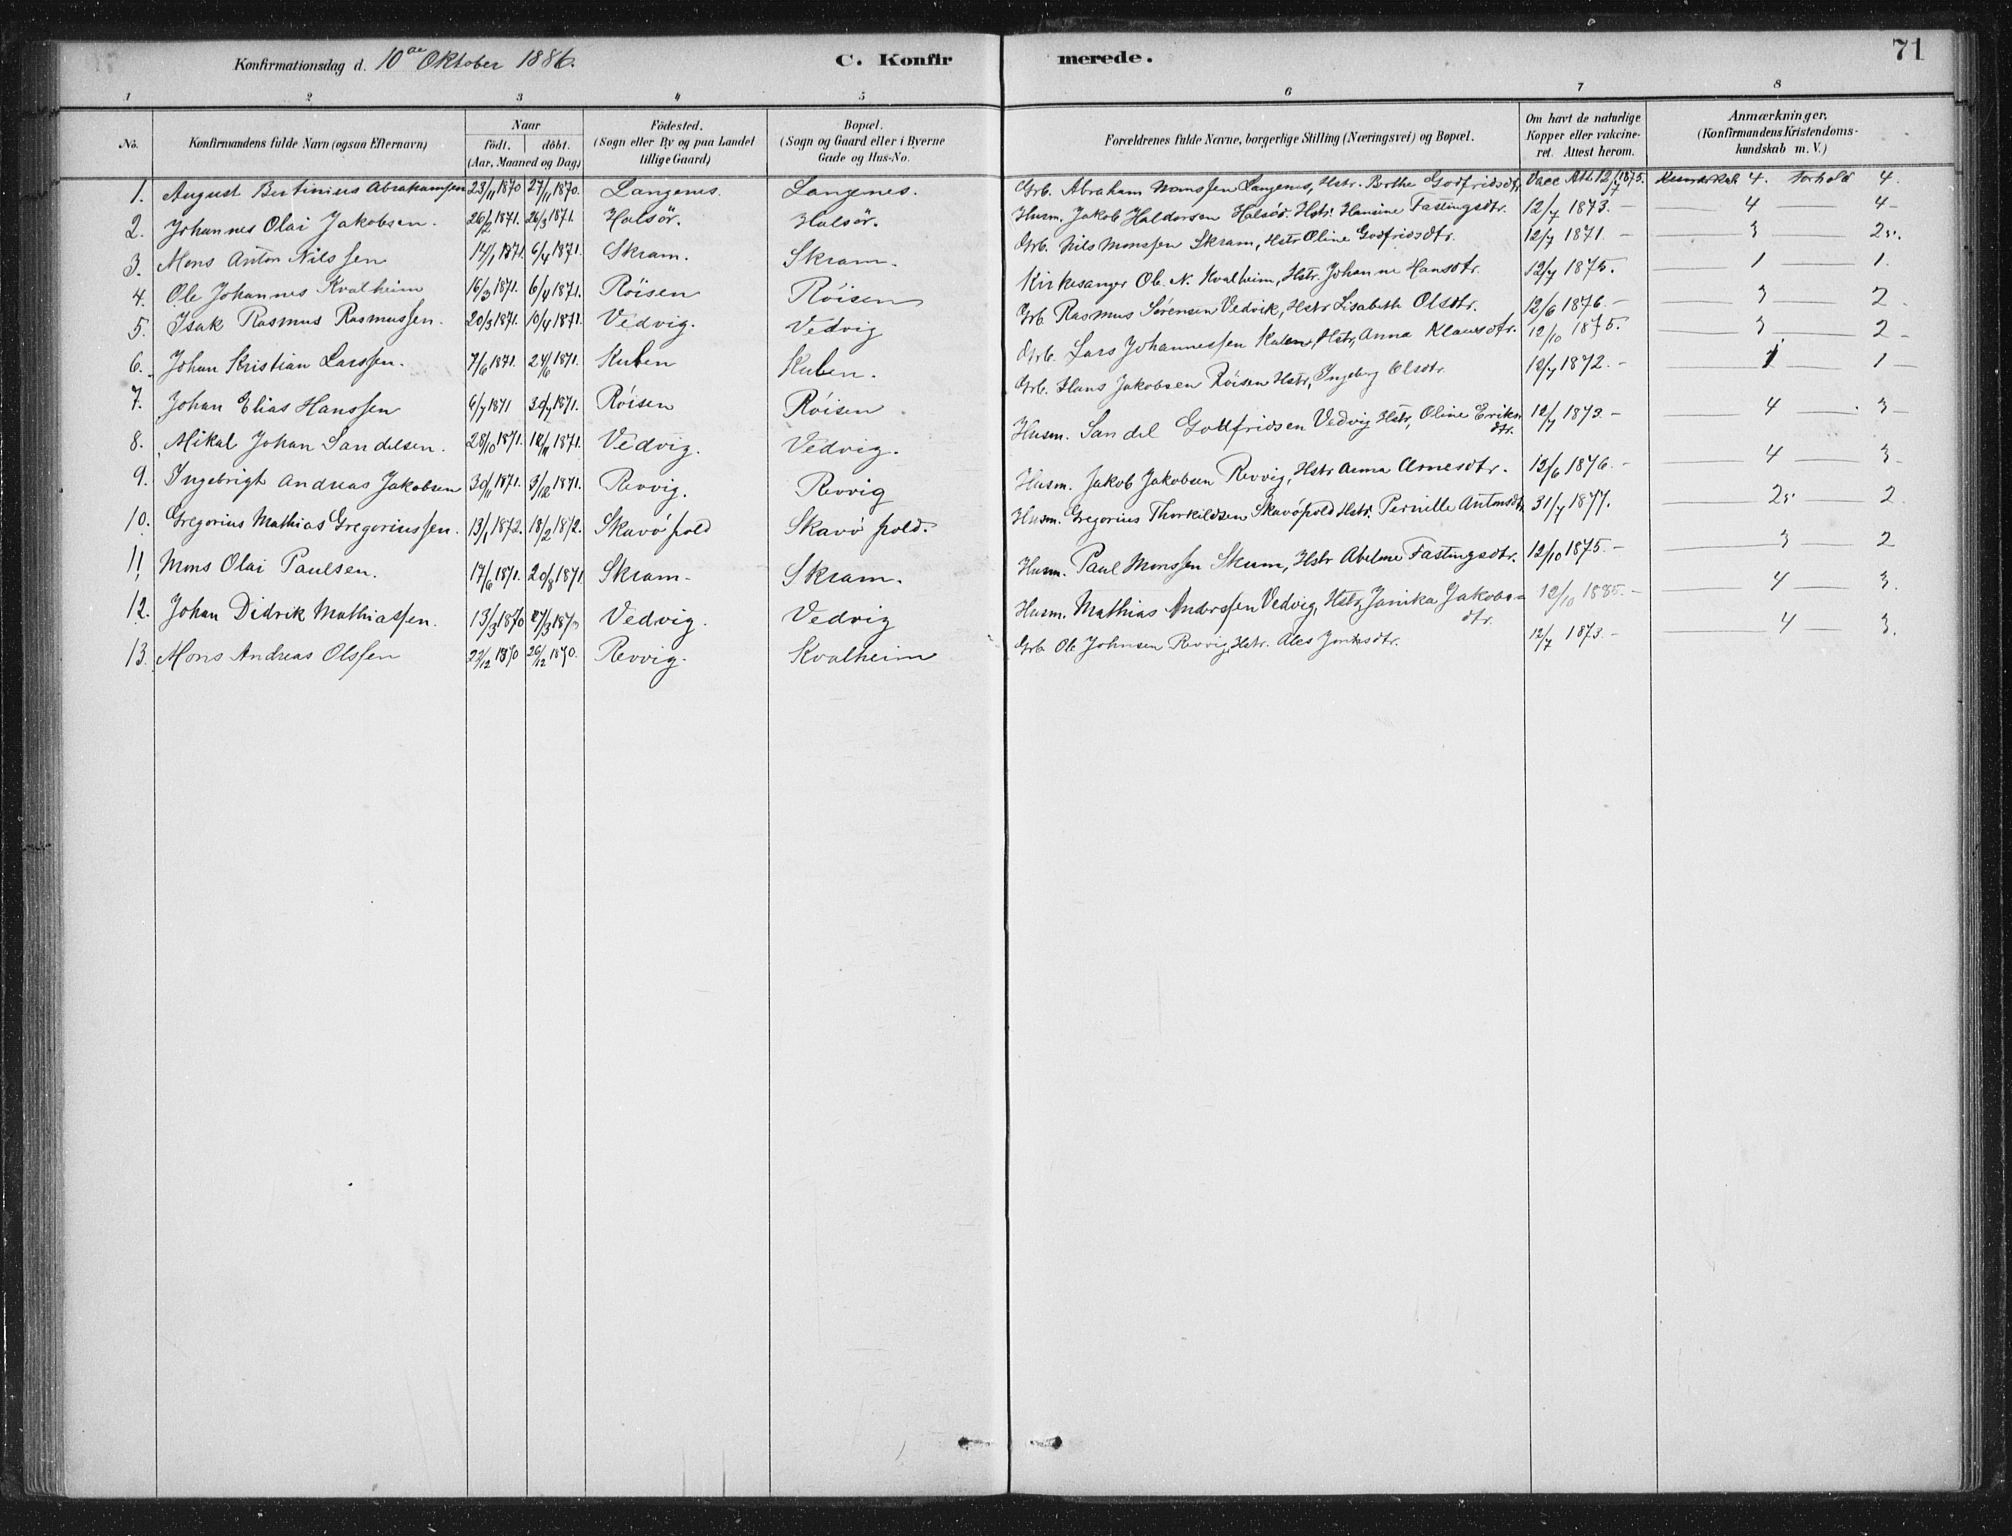 Konfirmationsdag d. 10de Oktober 1886. C. Konfir merede. 71
1 2 3 4 5 6 7 8
No. Konfirmandens fulde Navn (ogsaa Efternavn) Naar födt. döbt. (Aar, Maaned og Dag) Födested. (Sogn eller By og paa Landet tillige Gaard) Bopæl. (Sogn og Gaard eller i Byerne Gade og Hus-No. Forældrenes fulde Navne, borgerlige Stilling (Næringsvei) og Bopæl. Om havt de naturlige Kopper eller vakcineret. Attest herom. Anmærkninger. (Konfirmandens Kristendomskundskab m. V.)
1. August Bertinius Abrahamsen 23/11 1870 27/11 1870. Langenes. Langenes. Grb. Abraham Monssen Langenes, Hstr. Berthe Godfridsdtr. Vacc Att. 12/7 1875. Kundskab 4. Forhold 4.
2. Johannes Olai Jakobsen. 26/2 1871. 26/3 1871. Halsör. Halsör. Husm. Jakob Haldorsen Halsör. Hstr. Hansine Fastingsdtr. 12/7 1873. — 4 — 4 —
3. Mons Anton Nilssen 14/1 1871. 6/4 1871. Skram. Skram. Grb. Nils Monssen Skram, Hstr Oline Godfridsdtr. 12/7 1871. — 3 — 2.
4. Ole Johannes Kvalheim 16/3 1871. 6/4 1871. Röisen Röisen Kirkesanger Ole N. Kvalheim, Hstr. Johanne Hansdtr. 12/7 1875. — 1 — 1.
5. Isak Rasmus Rasmussen. 20/3 1871. 10/4 1871. Vedvig. Vedvig Grb. Rasmus Sørensen Vedvik, Hstr Lisabeth Olsdtr. 12/6 1876. — 3 — 2.
6. Johan Kristian Larssen. 7/6 1871. 24/6 1871. Kulen Kulen. Grb. Lars Johannessen Kulen, Hstr, Anna Klausdtr. 12/10 1875. — 3 — 2 -
7. Johan Elias Hanssen 6/7 1871 30/7 1871. Röisen Röisen Grb. Hans Jakobsen Röisen Hstr, Ingeborg Olsdtr. 12/7 1872. — 1 — 1 —
8. Mikal Johan Sandelsen. 28/10 1871. 12/11 1871. Vedvig. Vedvig. Husm. Sandel Gotfridsen Vedvig Hstr, Oline Eriksdtr. 12/7 1873. — 4 — 3 —
9. Ingebrigt Andreas Jakobsen 30/11 1871. 3/12 1871. Revvig. Revvig Husm. Jakob Jakobsen Revvig, Hstr Anna Arnesdtr. 12/6 1876. — 4 — 3 —
10. Gregorius Mathias Gregoriussen. 13/1 1872. 18/2 1872. Skavöpold Skavöpold. Husm. Gregorius Thorkildsen Skavöpold Hstr. Pernille Antonsdtr. 31/7 1877. — 2 — 2
11, Mons Olai Paulsen. 17/6 1871. 20/8 1871 Skram- Skram. Husm. Paul Monssen Skram, Hstr Abelone Fastingsdtr. 12/10 1875. — 3 — 2
12. Johan Didrik Mathiassen. 13/3 1870 27/3 1870 Vedvig. Vedvig Husm. Mathias Anderssen Vedvig, Hstr, Janika Jakobsdtr. 12/10 1885. — 4 — 3.
13. Mons Andreas Olssen 22/12 1870 26/12 1870. Revvig. Kvalheim Grb Ole Johnsen Revvig, Hstr. Ales Jontasdtr. 12/7 1873. — 4 — 3.